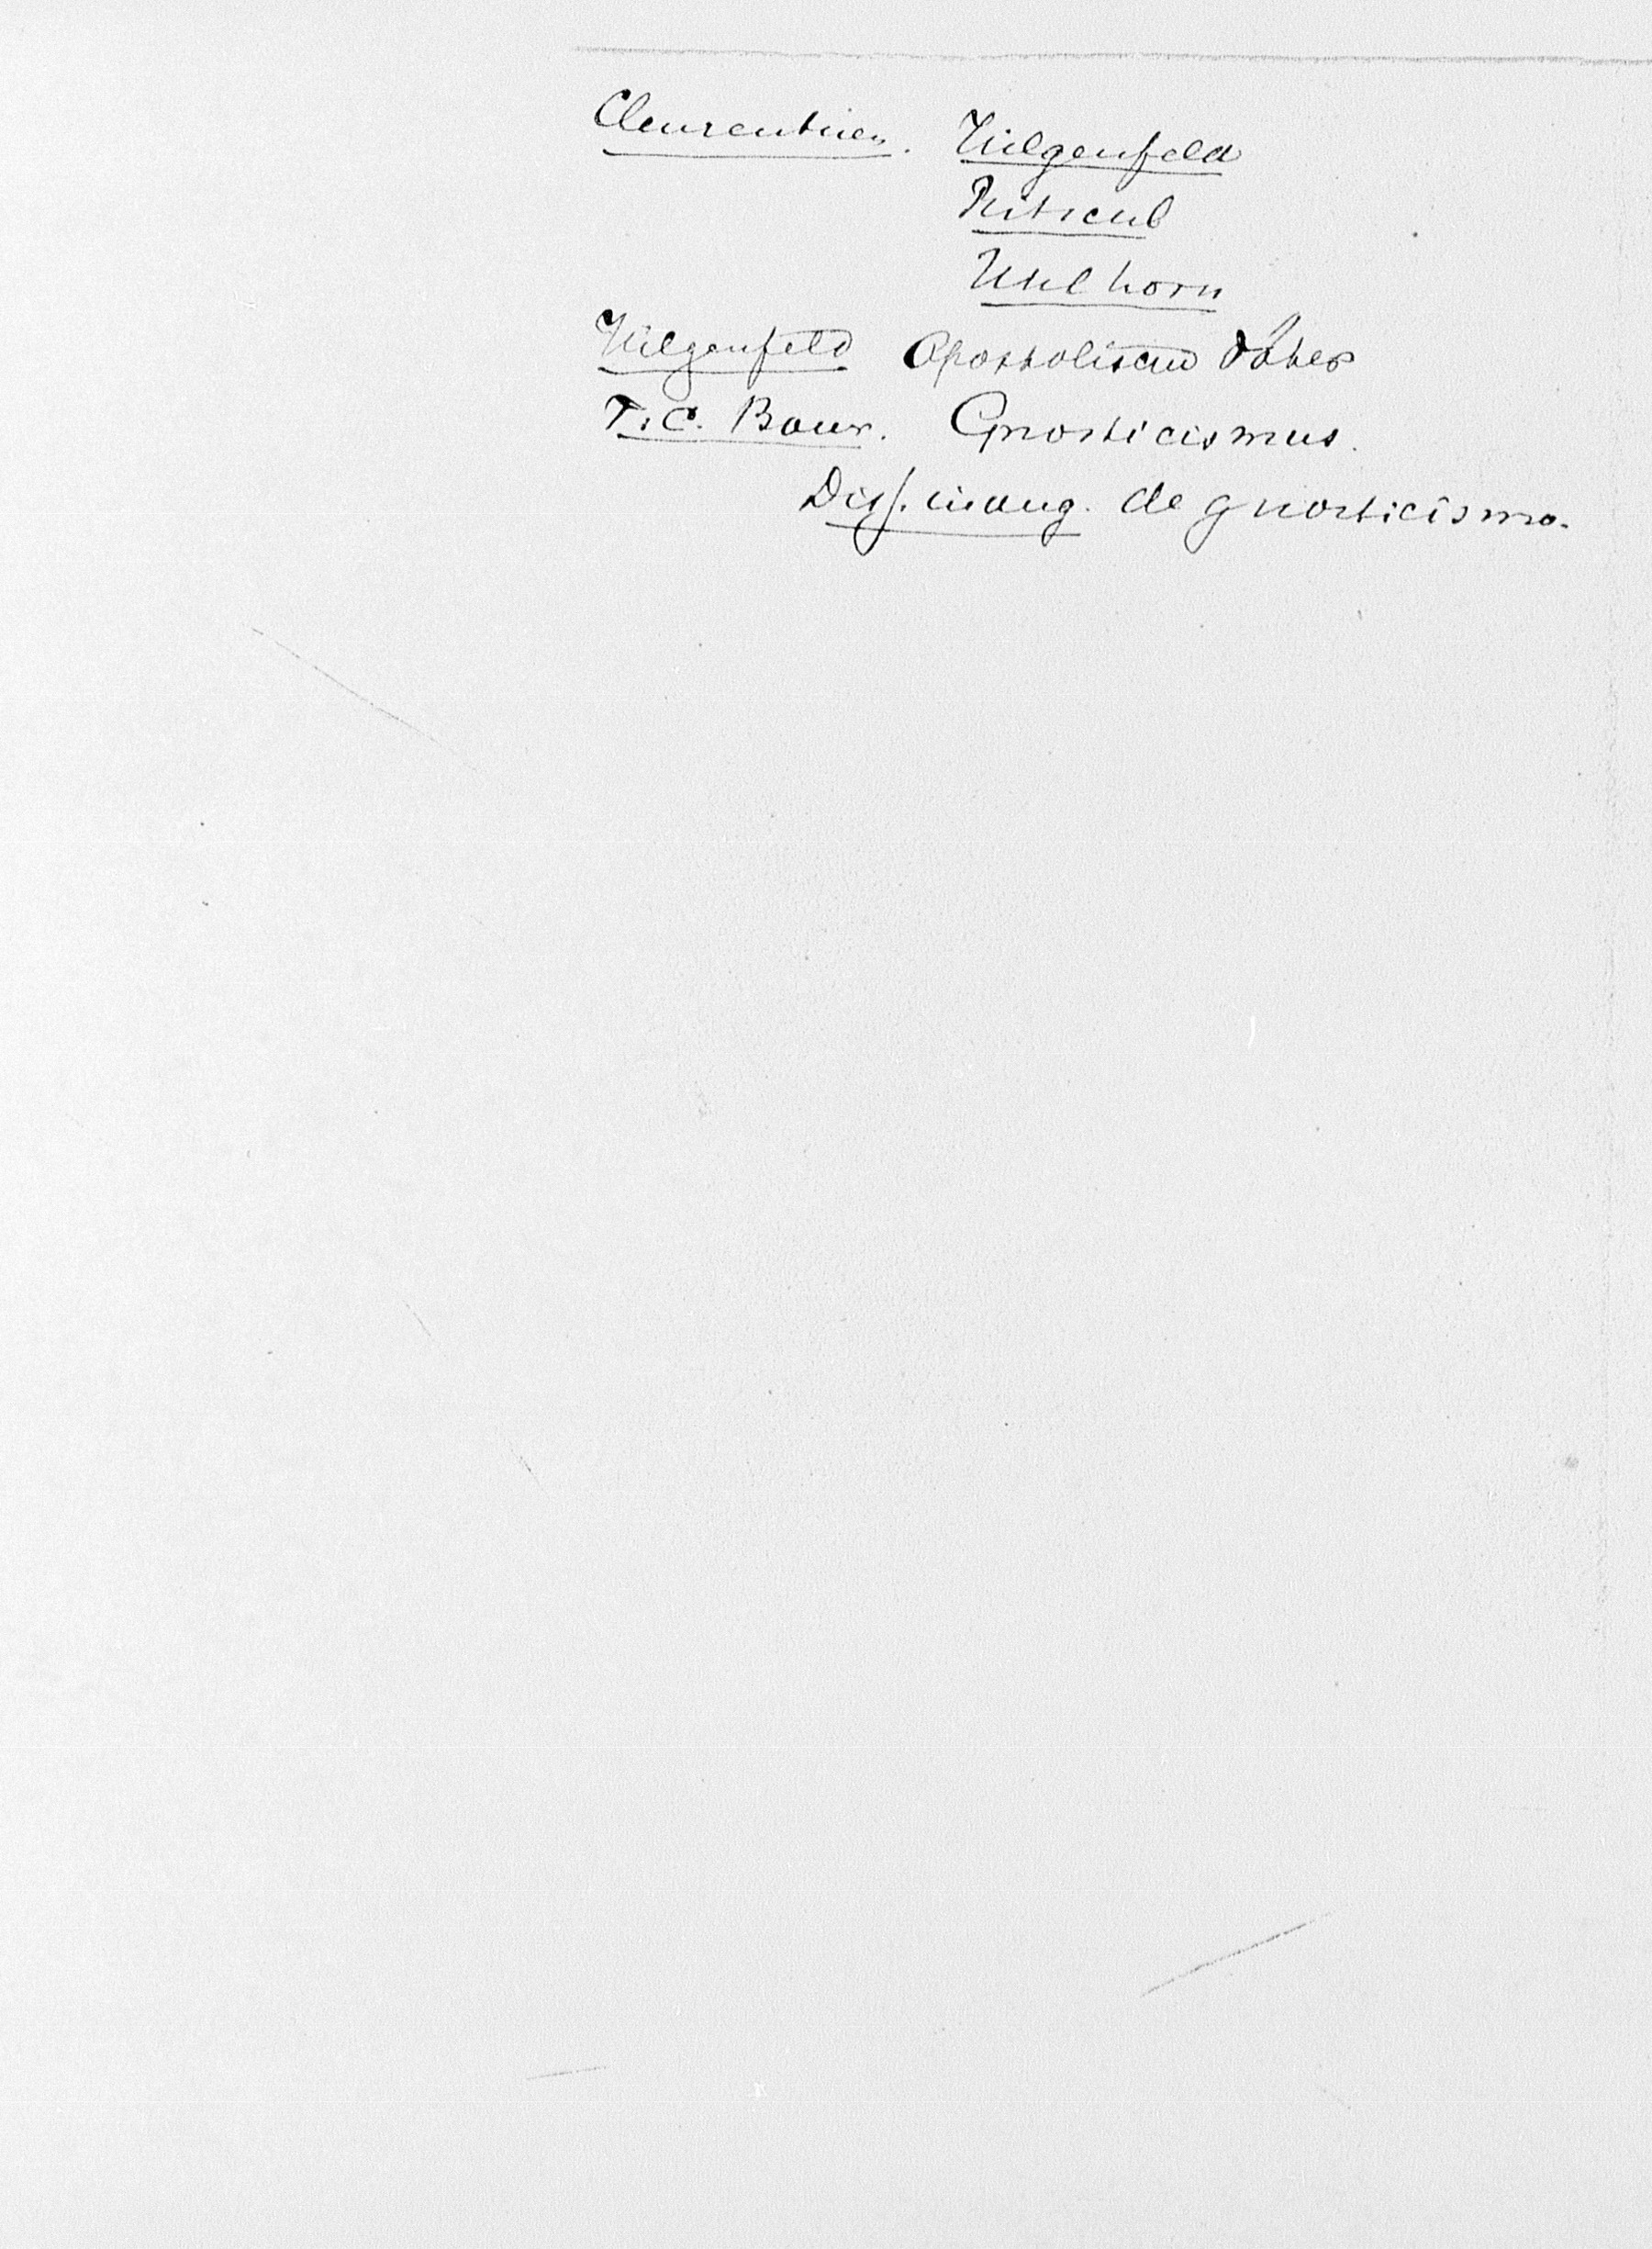 Clementinen. Hilgenfeld
Ritschl
Uhlhorn
Hilgenfeld Apostolischen Väter
F. C. Baur. Gnosticismus.
Diss. inaug. de gnosticismo.